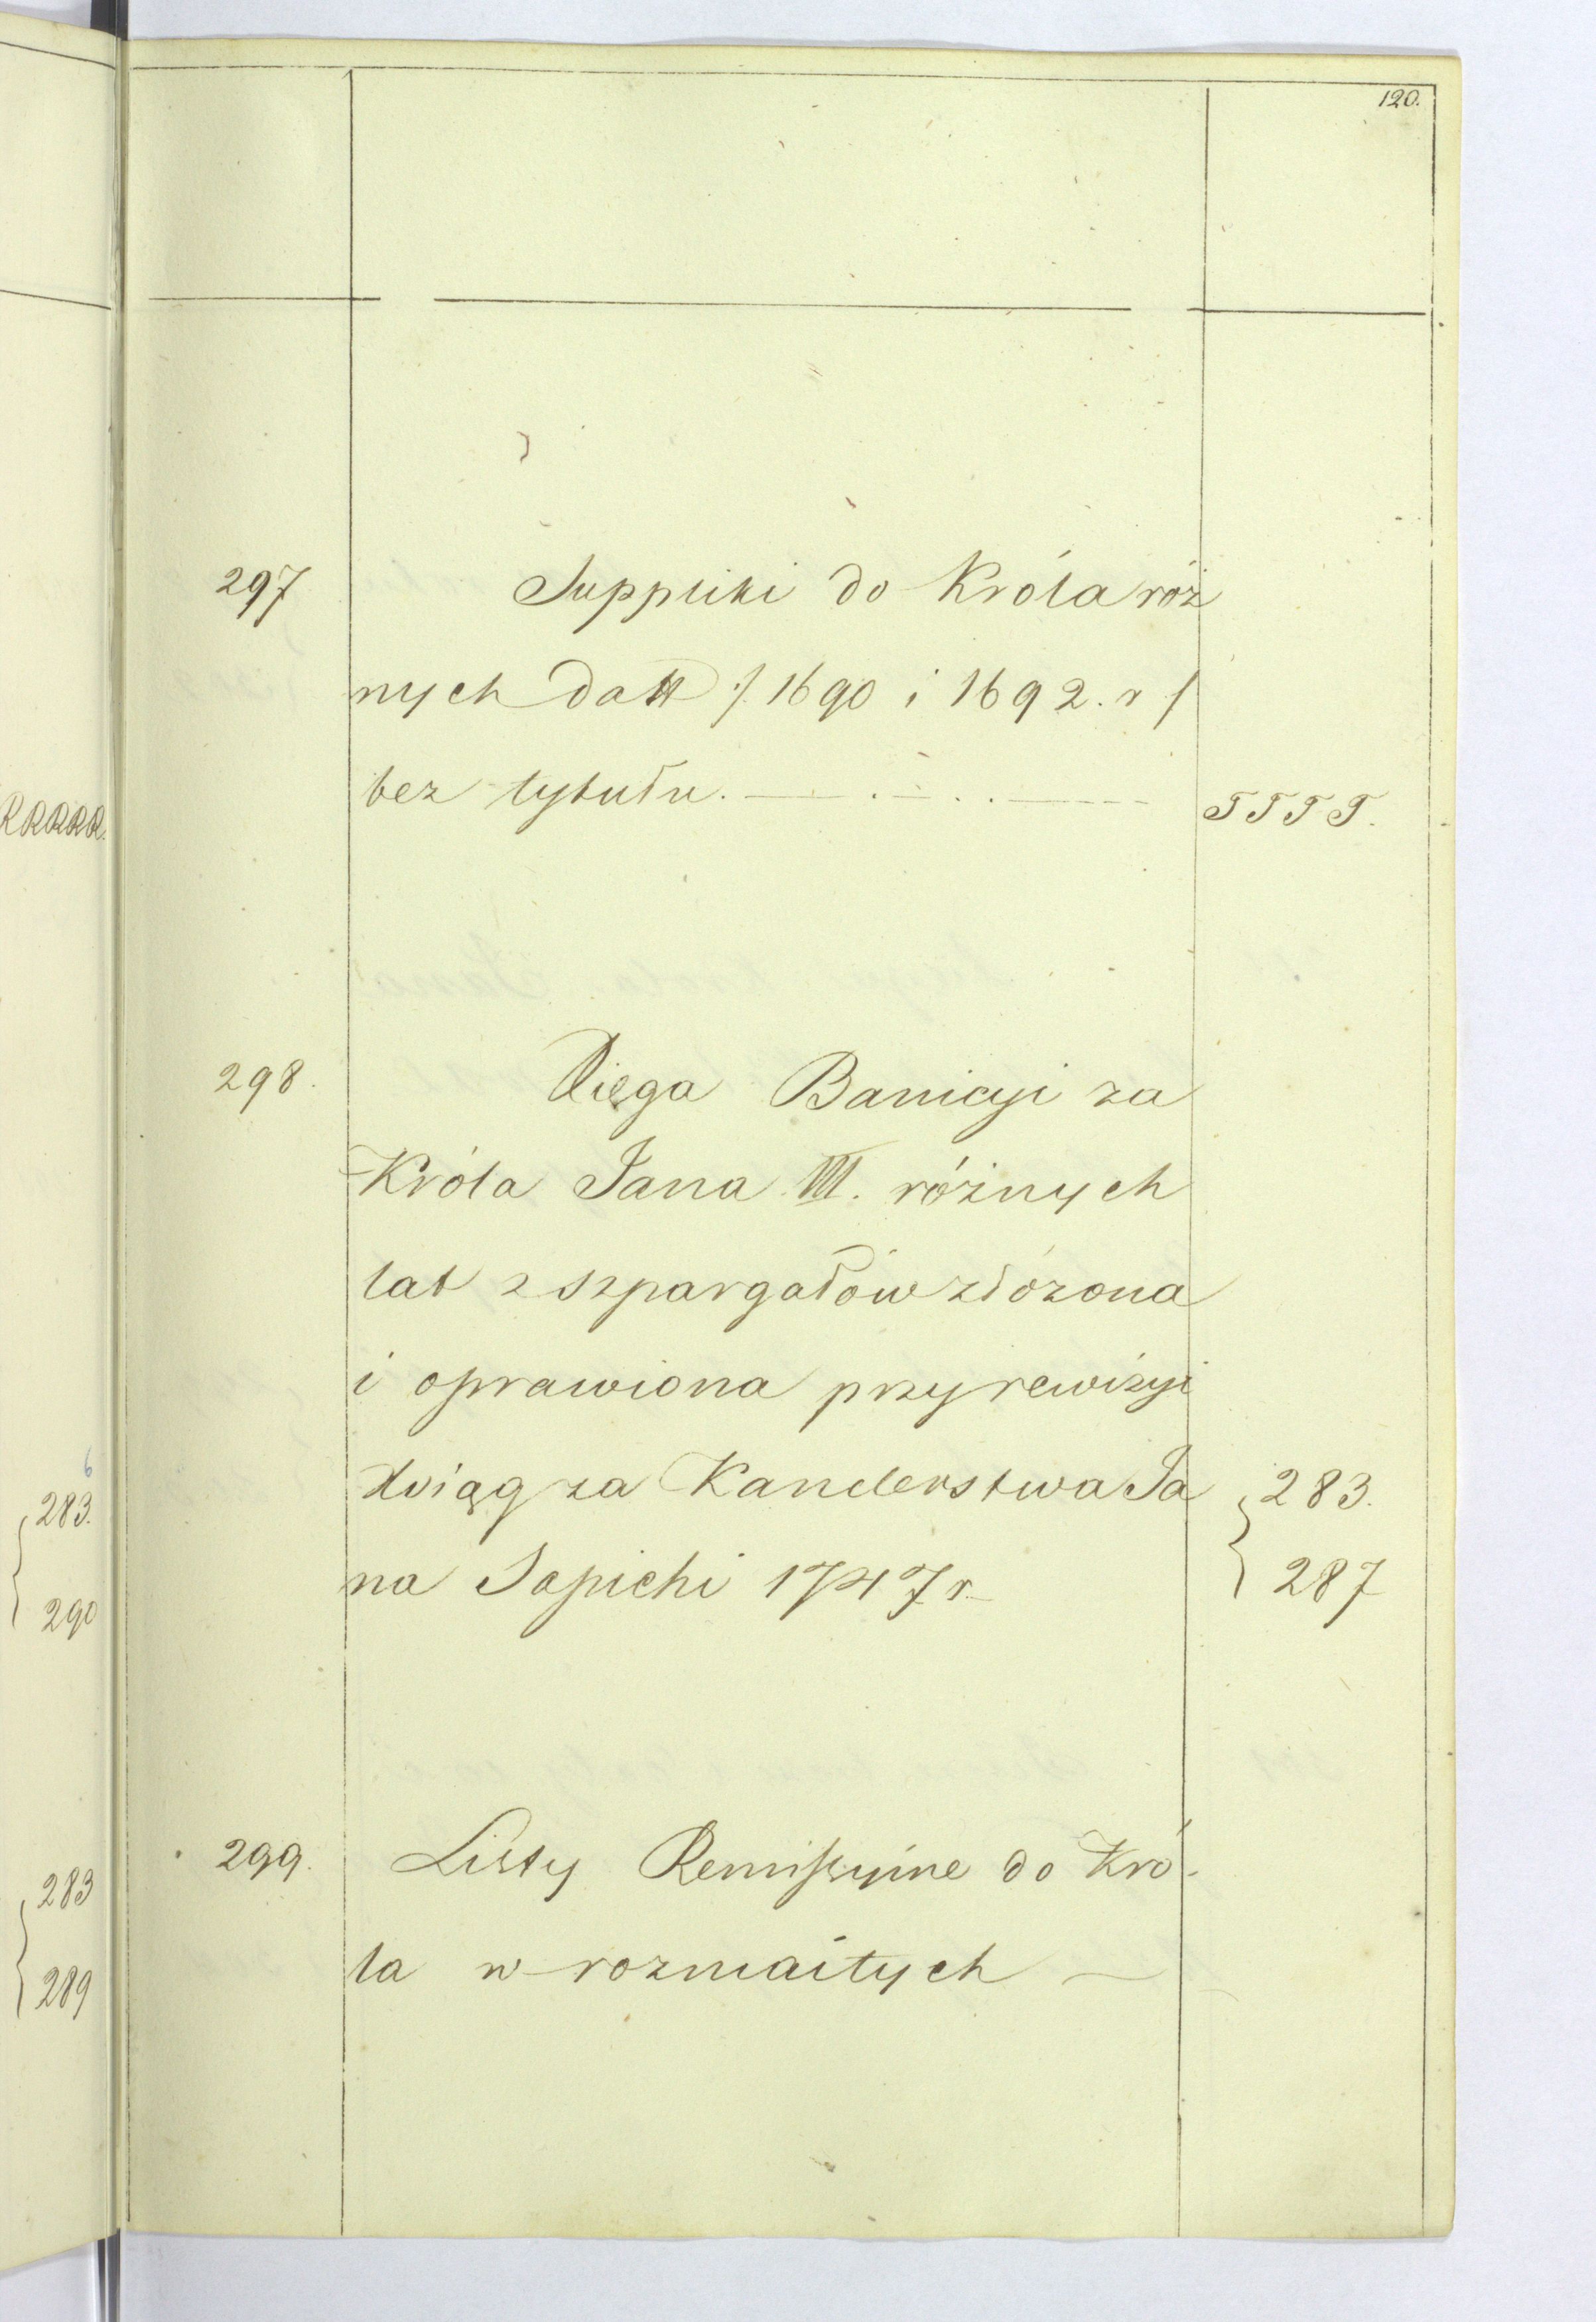 120.
297 Suppliki do Króla róż
nych datt /. 1690 i 1692. r /
bez tytułu. TTTT.
RRRRR.
298. Xięga Banicyi za
Króla Jana III. różnych
lat z szpargałów złożona
i oprawiona przy rewizyi
Xviąg za Kanclerstwa Ja 283.
na Sapiehi 1747 r. 287
6
283.
290
299. Listy Remissyine do Kró-
la w rozmaitych
283
289